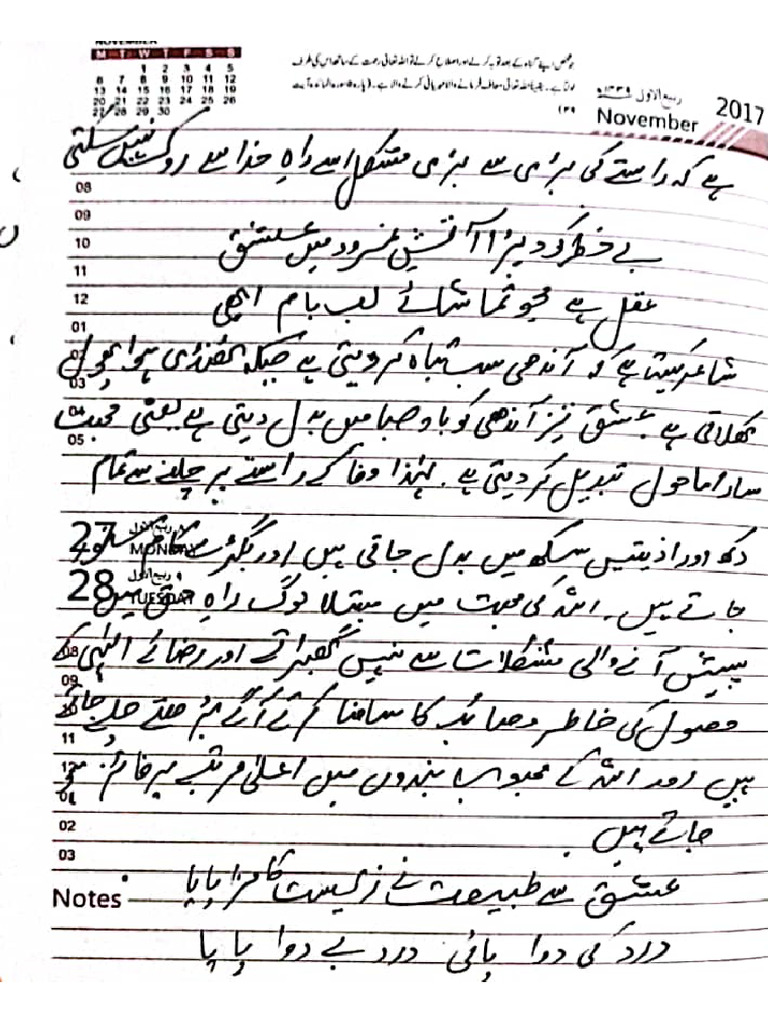 NOVEMBER
M T W T F S S
1 2 3 4 5
6 7 8 9 10 11 12
13 14 15 16 17 18 19
20 21 22 23 24 25 26
27 28 29 30
جو شخص اپنے گناہ کے بعد توبہ کرے اور اصلاح کرے تو اللہ تعالیٰ رحمت کے ساتھ اس کی طرف
لوٹتا ہے۔ یقیناً اللہ تعالیٰ معاف فرمانے والا مہربانی کرنے والا ہے۔ (پارہ ۶ سورۃ المائدہ آیت
۳۹)
ربیع الاول ۱۴۳۹ھ
November 2017
ہے کہ راستے کی بڑی سے بڑی مشکل اسے راہِ خدا سے روک نہیں سکتی
08
09
بے خطر کود پڑا آتشِ نمرود میں عشق
10
11
عقل ہے محوِ تماشائے لبِ بام ابھی
12
01
شاعر کہتا ہے کہ آندھی سب تباہ کر دیتی ہے جبکہ ٹھنڈی ہوا پھول
02
03
کھلاتی ہے۔ عشق تیز آندھی کو بادِ صبا میں بدل دیتی ہے یعنی محبت
04
05
سارا ماحول تبدیل کر دیتی ہے۔ لہٰذا وفا کے راستے پر چلنے سے تمام
27 MONDAY ۸ ربیع الاول
دکھ اور اذیتیں سکھ میں بدل جاتی ہیں اور بگڑے کام سنور
28 TUESDAY ۹ ربیع الاول
جاتے ہیں۔ اللہ کی محبت میں مبتلا لوگ راہِ حق میں
پیش آنے والی مشکلات سے نہیں گھبراتے اور رضائے الٰہی کے
08
09
حصول کی خاطر مصائب کا سامنا کرتے آگے بڑھتے چلے جاتے
10
11
ہیں اور اللہ کے محبوب بندوں میں اعلیٰ مرتبے پر فائز ہو
12
01
جاتے ہیں۔
02
03
عشق سے طبیعت نے زیست کا مزا پایا
Notes
درد کی دوا پائی درد بے دوا پایا